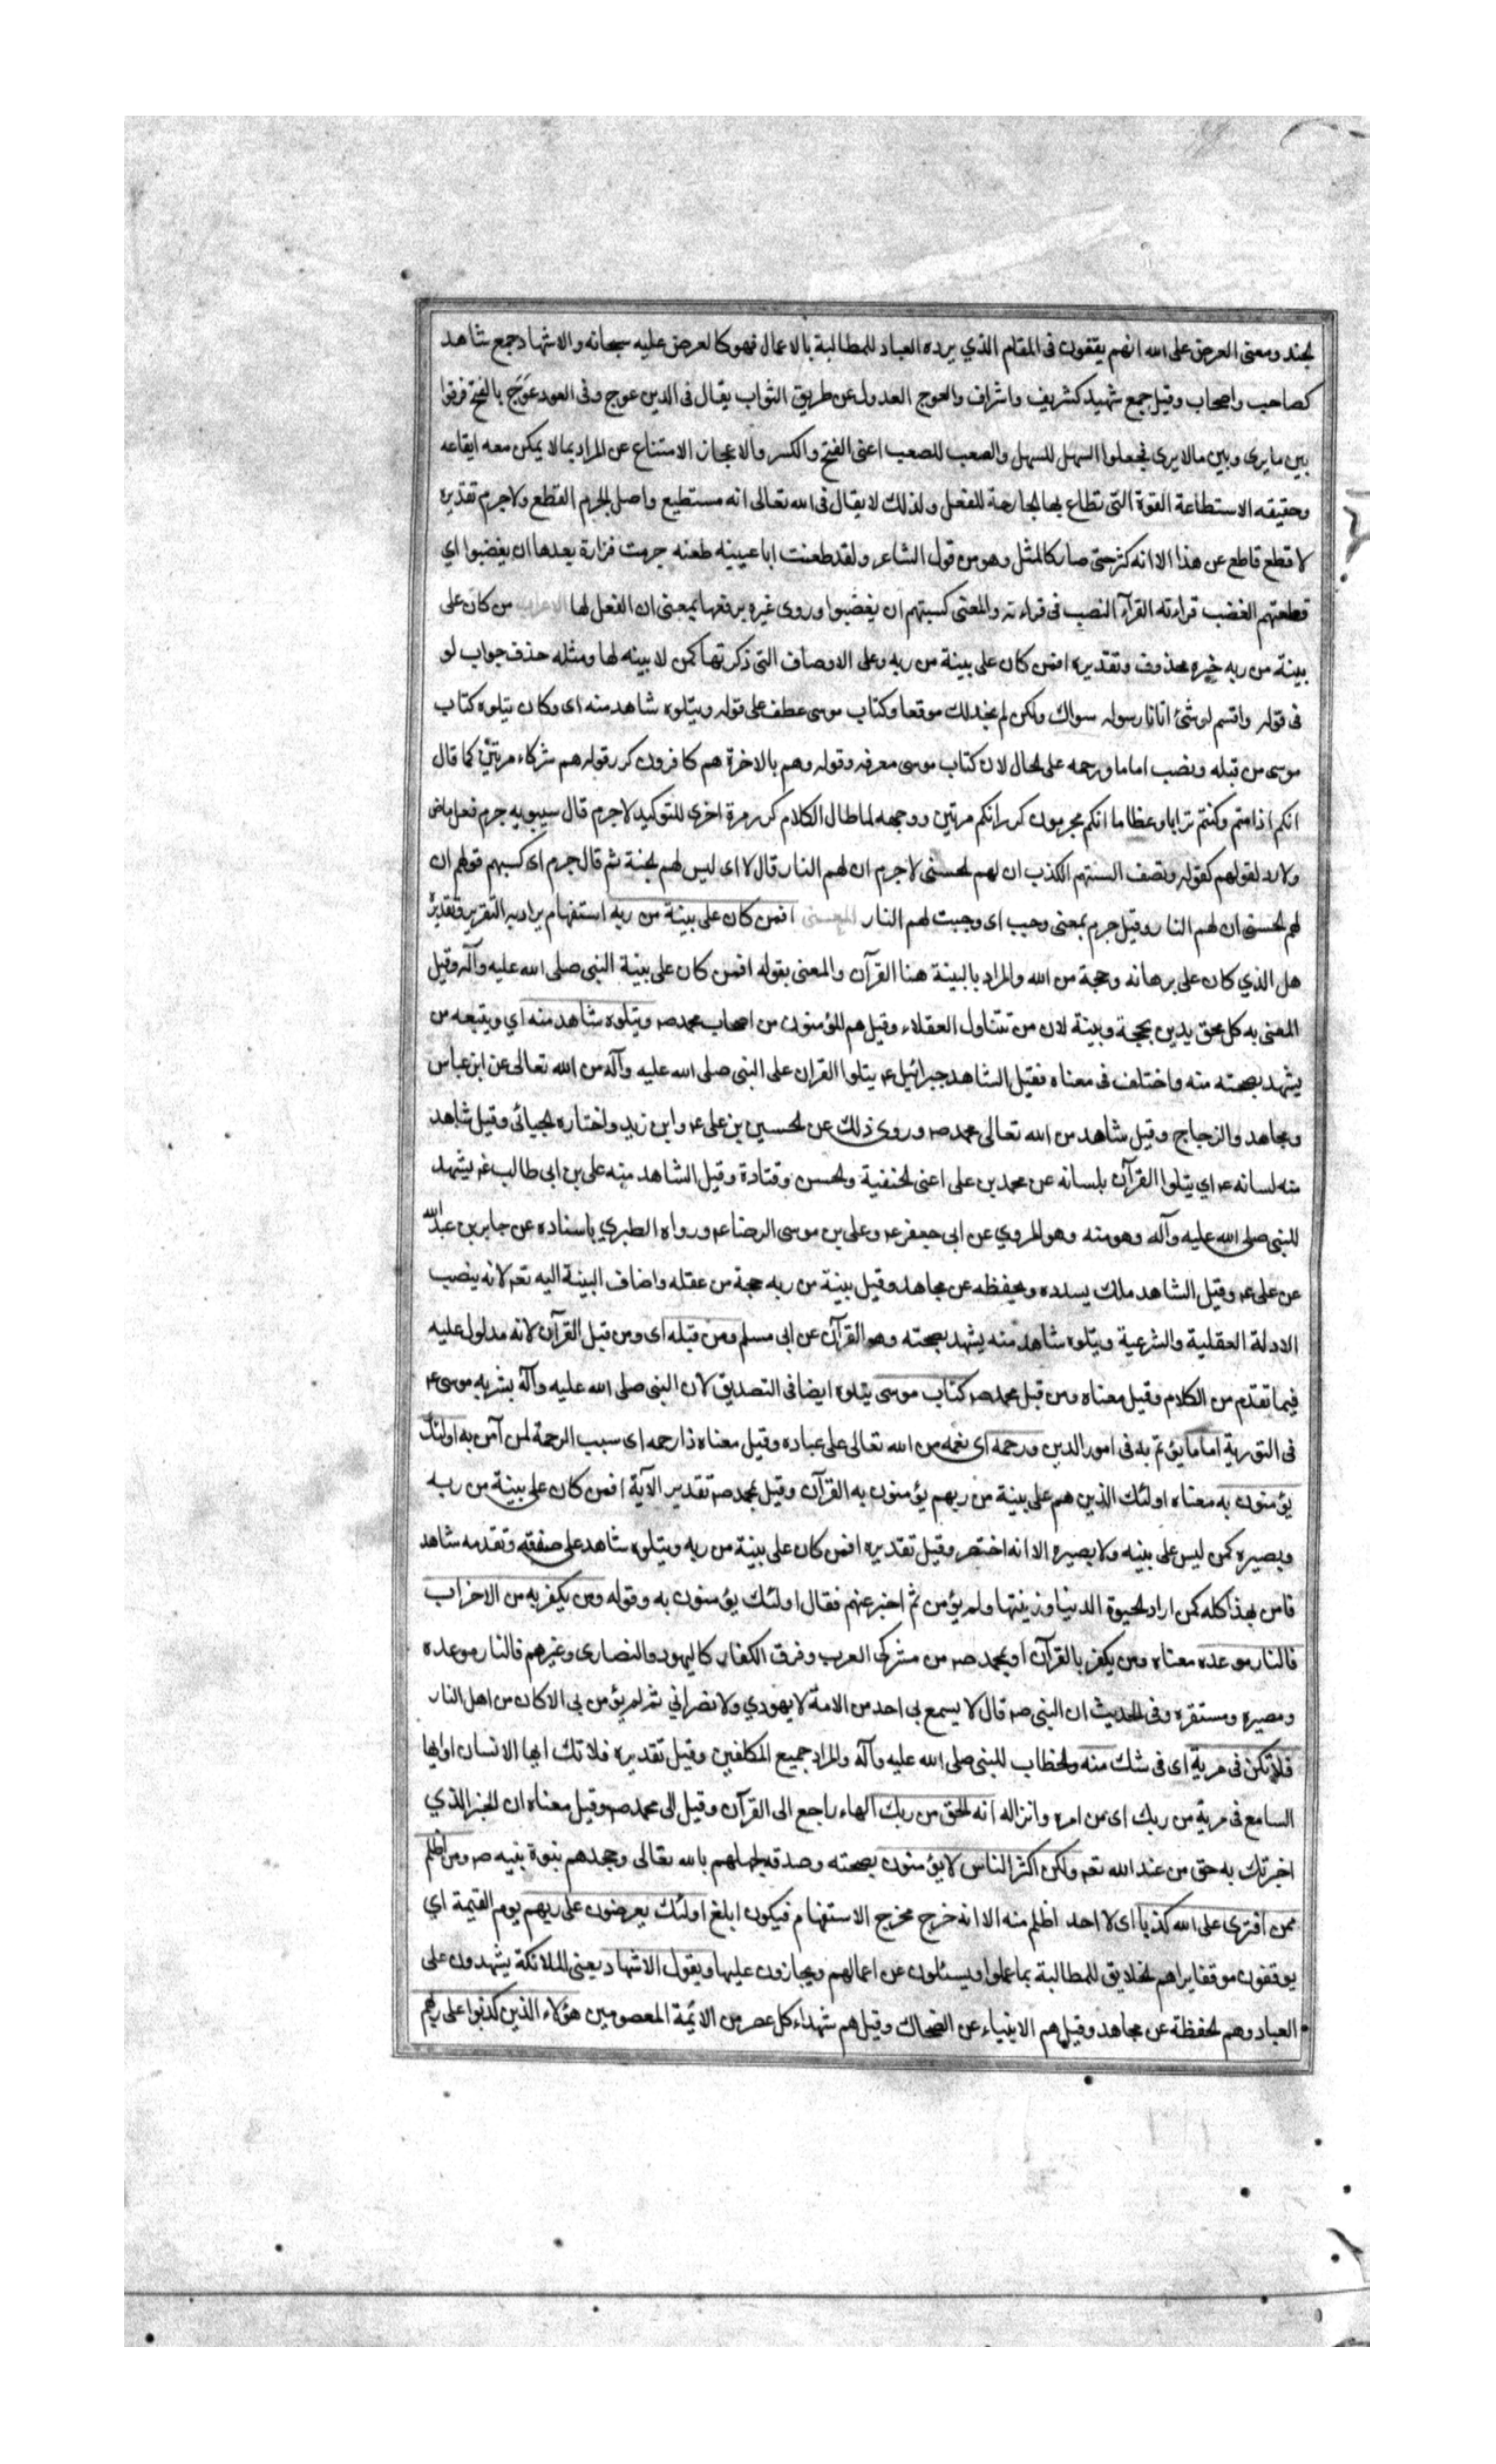 لجند ومعنى العرض على الله انهم يقفون فى المقام الذي يرده العباد للمطالبة بالاعمال فهو كالعرض عليه سبحانه والاشهاد جمع شاهد
كصاحب واصحاب وقيل جمع شهيد كشريف واشراف والعوج العدول عن طريق الثواب يقال فى الدين عوج وفى العود عَوَج بالفتح فرقوا
بين ما يرى وبين مالا يرى فجعلوا السهل للسهل والصعب للصعب اعنى الفتح والكسر والاعجاز الامتناع عن المراد بما لا يمكن معه ايقاعه
وحقيقه الاستطاعة القوة التى تطاع بها الجارحة للفعل ولذلك لا يقال فى الله تعالى انه مستطيع واصل الجرم القطع ولاجرم تقديره
لا قطع قاطع عن هذا الا انه كثر حتى صار كالمثل وهو من قول الشاعر ولقد طعنت ابا عيينه طعنه جرمت فزارة بعدها ان يغضبوا اي
قطعتهم الغضب قراءته القرآء النصب فى قراءته والمعنى كسبتهم ان يغضبوا وروى غيره برفعها بمعنى ان الفعل لها الاعراب من كان على
بينة من ربه خبره محذوف وتقديره افمن كان على بينة من ربه وعلى الاوصاف التى ذكرتها كمن لا بينه لها ومثله حذف جواب لو
فى قوله واقسم لو شئ اتانا رسوله سواك ولكن لم نجد لك موقعا وكتاب موسى عطف على قوله ويتلوه شاهد منه اى وكان يتلوه كتاب
موسى من قبله ونصب اماما ورحمه على الحال لان كتاب موسى معرفه وقوله وهم بالاخرة هم كافرون كرر قوله هم شركاء مرتين كما قال
انكم اذا متم وكنتم ترابا وعظاما انكم مخرجون كرر انكم مرتين ووجهه لما طال الكلام كرر مرة اخرى للتوكيد لاجرم قال سيبويه جرم فعل ماض
ولا رد لقولهم كقوله وتصف السنتهم الكذب ان لهم الحسنى لاجرم ان لهم النار قال لا اى ليس لهم الجنة ثم قال جرم اى كسبهم قولهم ان
لهم الحسنى ان لهم النار وقيل جرم بمعنى وجب اى وجبت لهم النار المعنى افمن كان على بينة من ربه استفهام يراد به التقرير وتقديره
هل الذي كان على برهانه وحجة من الله والمراد بالبينة هنا القرآن والمعنى بقوله افمن كان على بينة النبى صلى الله عليه وآله وقيل
المعنى به كل محق يدين بحجة وبينة لان من تتناول العقلاء وقيل هم المؤمنون من اصحاب محمد صم ويتلوه شاهد منه اي ويتبعه من
يشهد بصحته منه واختلف فى معناه فقيل الشاهد جبرائيل عم يتلوا القران على النبى صلى الله عليه وآله من الله تعالى عن ابن عباس
ومجاهد والزجاج وقيل شاهد من الله تعالى محمد صم وروى ذلك عن الحسين بن على عم وابن زيد واختاره الجبائى وقيل شاهد
منه لسانه عم اي يتلوا القرآن بلسانه عن محمد بن على اعنى الحنفية والحسن وقتادة وقيل الشاهد منه على بن ابى طالب عم يشهد
للنبى صلى الله عليه وآله وهو منه وهو المروي عن ابى جعفر عم وعلى بن موسى الرضا عم ورواه الطبري باسناده عن جابر بن عبد الله
عن على عم وقيل الشاهد ملك يسدده ويحفظه عن مجاهد وقيل بينة من ربه حجة من عقله واضاف البينة اليه تعم لانه ينصب
الادلة العقلية والشرعية ويتلوه شاهد منه يشهد بصحته وهو القرآن عن ابى مسلم ومن قبله اى ومن قبل القرآن لانه مدلول عليه
فيما تقدم من الكلام وقيل معناه ومن قبل محمد صم كتاب موسى يتلوه ايضا فى التصديق لان النبى صلى الله عليه وآله بشر به موسى عم
فى التورية اماما يؤتم به فى امور الدين ورحمه اى نعمه من الله تعالى على عباده وقيل معناه ذا رحمه اى سبب الرحمة لمن آمن به اولئك
يؤمنون به معناه اولئك الذين هم على بينة من ربهم يؤمنون به القرآن وقيل بمحمد صم تقدير الآية افمن كان على بينة من ربه
وبصيره كمن ليس على بينه ولا بصيره الا انه اختصر وقيل تقديره افمن كان على بينة من ربه ويتلوه شاهد على صفقه وتقدمه شاهد
فامن بهذا كله كمن اراد الحيوة الدنيا وزينتها ولم يؤمن ثم اخبر عنهم فقال اولئك يؤمنون به وقوله ومن يكفر به من الاحزاب
فالنار موعده معناه ومن يكفر بالقرآن او بمحمد صم من مشركى العرب وفرق الكفار كاليهود والنصارى وغيرهم فالنار موعده
ومصيره ومستقره وفى الحديث ان النبى صم قال لا يسمع بى احد من الامة لا يهودي ولا نصراني ثم لم يؤمن بى الا كان من اهل النار
فلا تكن فى مرية اى فى شك منه والخطاب للنبى صلى الله عليه وآله والمراد جميع المكلفين وقيل تقديره فلا تك ايها الانسان او ايها
السامع فى مرية من ربك اى من امره وانزاله انه الحق من ربك الهاء راجع الى القرآن وقيل الى محمد صم وقيل معناه ان الخبر الذي
اخبرتك به حق من عند الله تعم ولكن اكثر الناس لا يؤمنون بصحته وصدقه لجهلهم بالله تعالى وجحدهم بنوة نبيه صم ومن اظلم
ممن افترى على الله كذبا اى لا احد اظلم منه الا انه خرج مخرج الاستفهام فيكون ابلغ اولئك يعرضون على ربهم يوم القيمة اي
يوقفون موقفا يراهم الخلايق للمطالبة بما عملوا ويسئلون عن اعمالهم ويجازون عليها ويقول الاشهاد يعنى الملائكة يشهدون على
العباد وهم الحفظة عن مجاهد وقيل هم الانبياء عن الضحاك وقيل هم شهداء كل عصر من الائمة المعصومين هؤلاء الذين كذبوا على ربهم